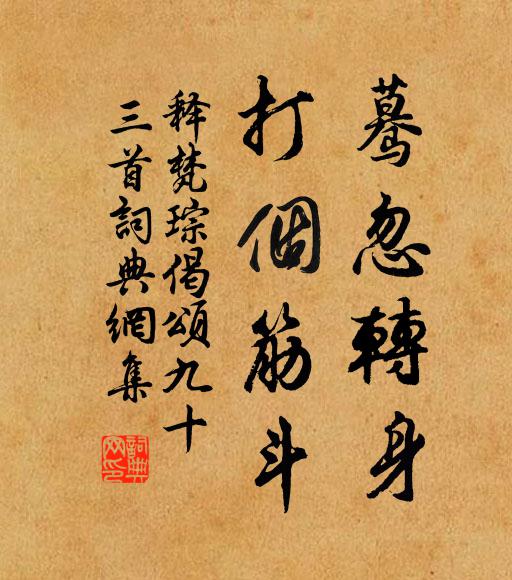 驀忽轉身
打個筋斗
释梵琮偈頌九十
三首詞典網集
詞典网印